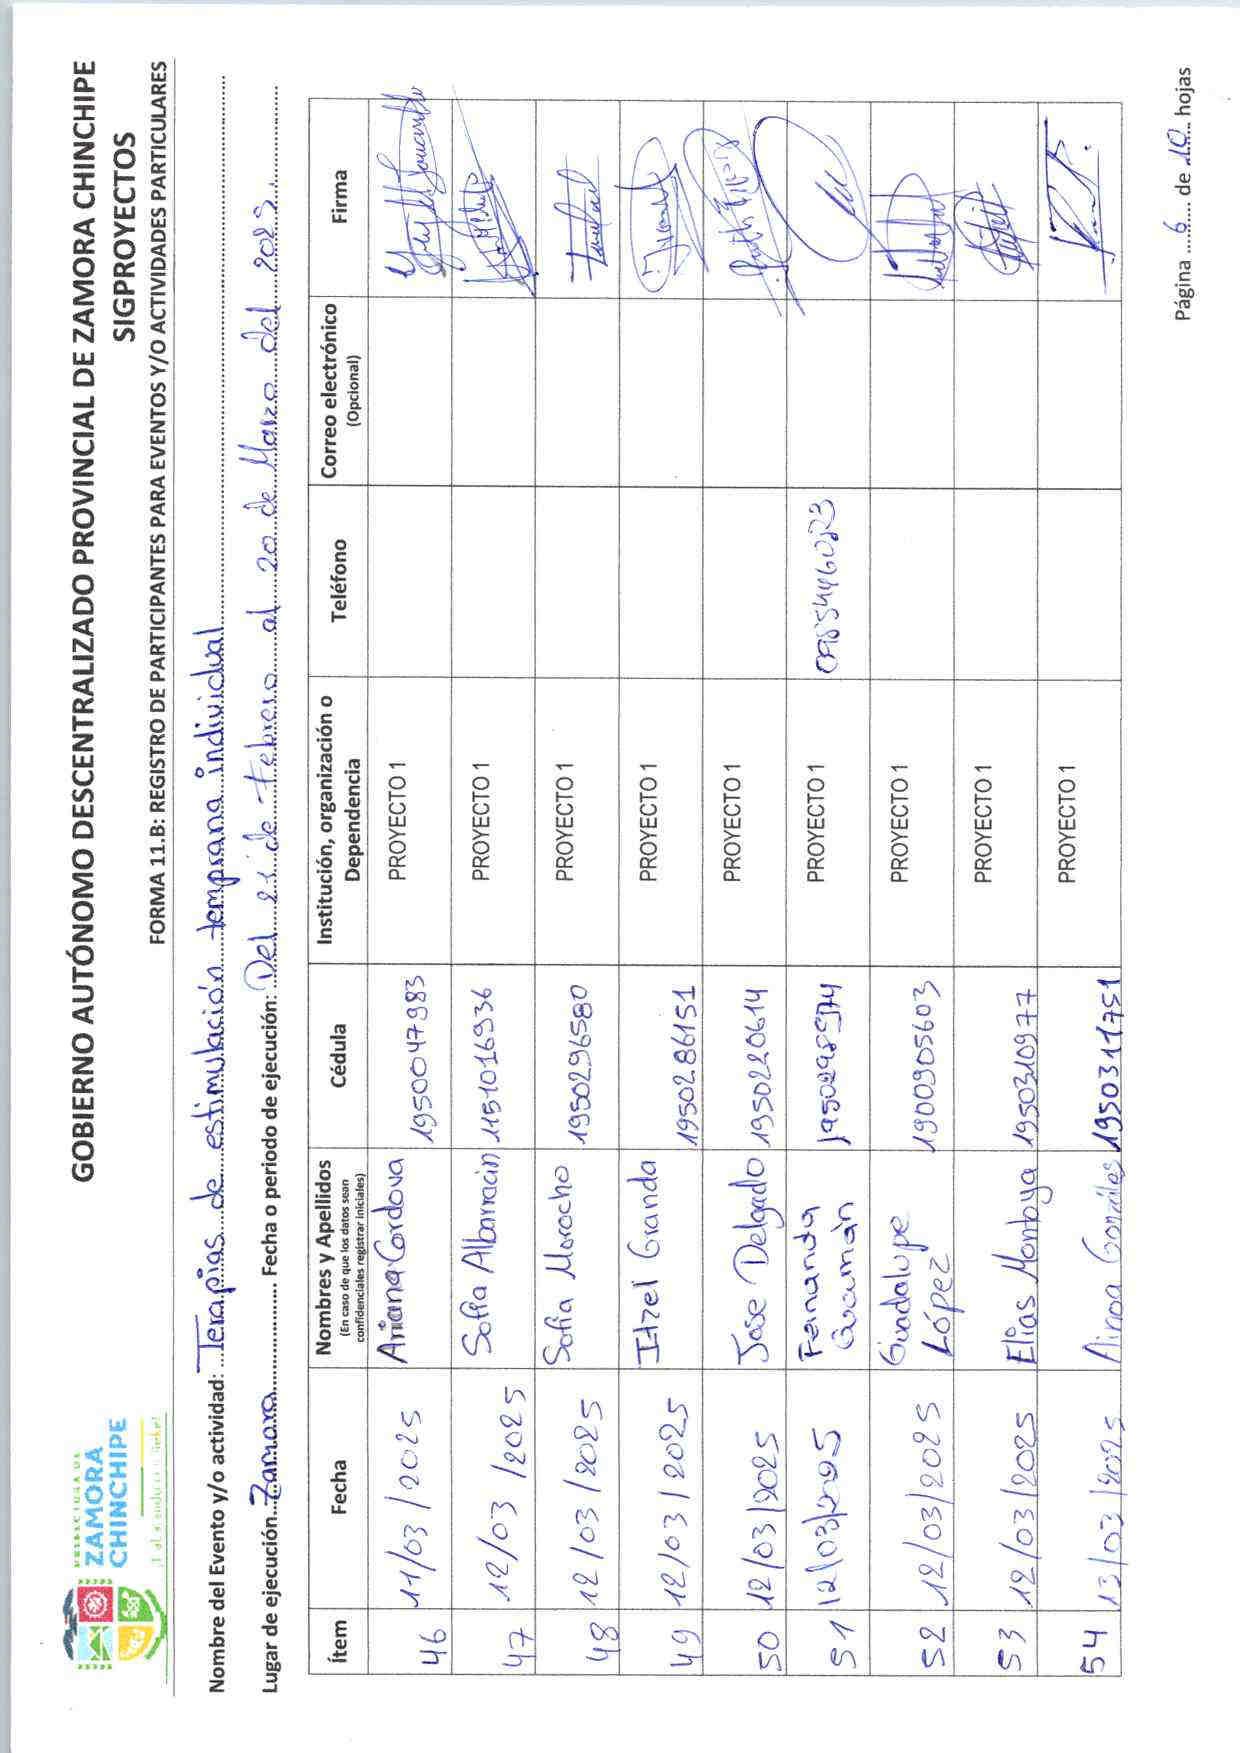 ZAMORA
CHINCHIPE
GOBIERNO AUTÓNOMO DESCENTRALIZADO PROVINCIAL DE ZAMORA CHINCHIPE
SIGPROYECTOS
FORMA 11.B: REGISTRO DE PARTICIPANTES PARA EVENTOS Y/O ACTIVIDADES PARTICULARES
Nombre del Evento y/o actividad: Terapias de estimulación temprana individual
Lugar de ejecución Zamora Fecha o periodo de ejecución: Del 21 de Febrero al 20 de Marzo del 2025
Ítem Fecha Nombres y Apellidos (En caso de que los datos sean confidenciales registrar iniciales) Cédula Institución, organización o Dependencia Teléfono Correo electrónico (Opcional) Firma
46 11/03/2025 Ariana Cordova 1950047983 PROYECTO 1
47 12/03/2025 Sofia Albarracin 1151016936 PROYECTO 1
48 12/03/2025 Sofia Morocho 1950296580 PROYECTO 1
49 12/03/2025 Itzel Granda 1950286151 PROYECTO 1
50 12/03/2025 Jose Delgado 1950220614 PROYECTO 1
51 12/03/2025 Fernanda 1950298574 PROYECTO 1
52 12/03/2025 Guadalupe López 1900905603 PROYECTO 1
53 12/03/2025 Elias Montoya 1950310977 PROYECTO 1
54 13/03/2025 Ainoa Gonzáles 1950311751 PROYECTO 1
Página 6 de 10 hojas